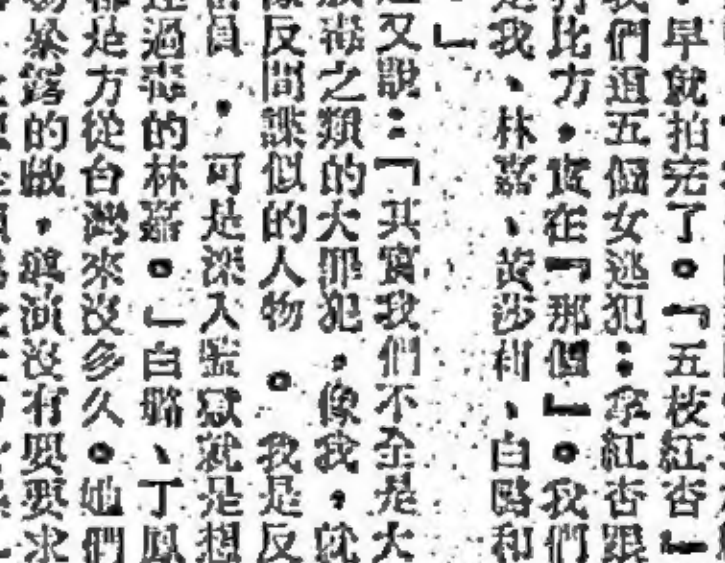 ，早就拍完了。『五枝紅杏』
我們這五個女逃犯：拿紅杏跟
比方，實在『那個』。我們
是我、林嘉、黃莎莉、白璐和
』
又說：『其實我們不全是大
毒之類的大罪犯，像我，就
像反間諜似的人物。我是反
員，可是深入監獄就是想
過毒的林嘉。」白璐、丁鳳
是方從台灣來沒多久。她們
暴露的戲，導演沒有要求